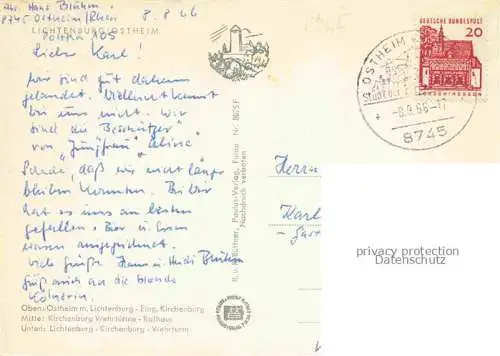 Abs. Hans Blühm.
8745 Ostheim/Rhön 8.8.66
LICHTENBURG OSTHEIM
Lieber Karl!
Wir sind gut daheim
gelandet. Vielleicht kannst
bei uns nicht. Wir
sind die Beschützer
von "Jungfrau"
Schade, daß wir nicht länger
bleiben konnten. Bei Dir
hat es uns am besten
gefallen. Bier u. Essen
waren ausgezeichnet.
Viele Grüße Hans u. Heidi Blühm
Gruß auch an die blonde
Kellnerin.
Oben: Ostheim m. Lichtenburg - Burg, Kirchenburg
Mitte: Kirchenburg Wehrtürme - Rathaus
Unten: Lichtenburg - Kirchenburg - Wehrturm
Paulus-Verlag, Fulda Nr. 8625 F
Nachdruck verboten
DEUTSCHE BUNDESPOST
20
OSTHEIM
-8.8.66-17
8745
Herrn
Karl
privacy protection
Datenschutz